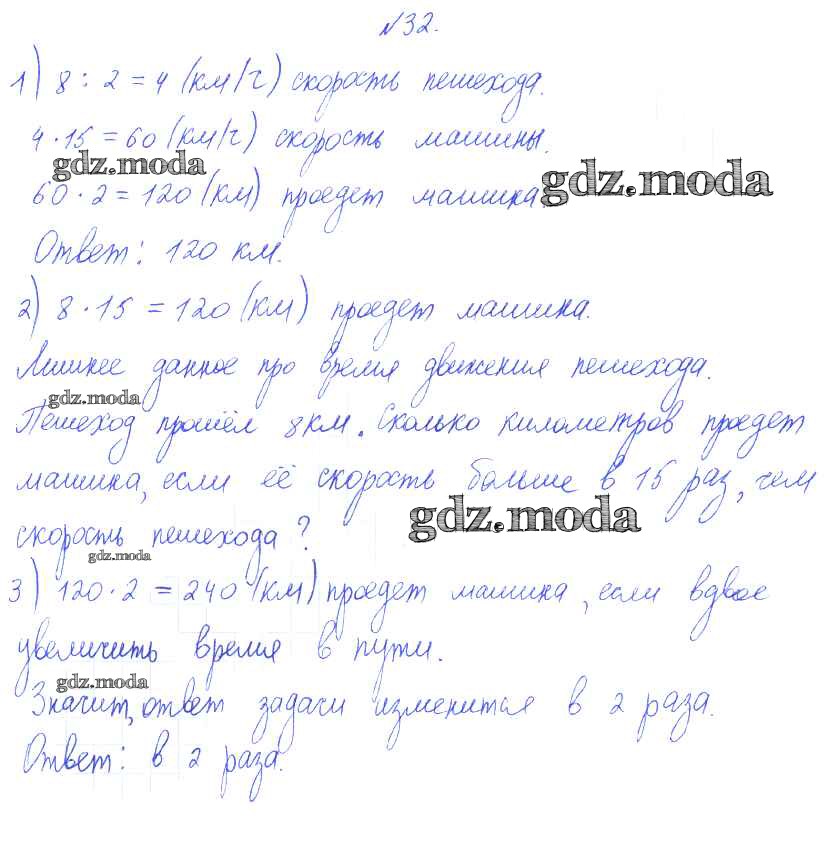 №32.
1) 8 : 2 = 4 (км/г) скорость пешехода.
4 · 15 = 60 (км/г) скорость машины.
gdz.moda
gdz.moda
60 · 2 = 120 (км) проедет машина.
Ответ: 120 км.
2) 8 · 15 = 120 (км) проедет машина.
Лишнее данное про время движения пешехода.
gdz.moda
Пешеход прошёл 8 км. Сколько километров проедет
машина, если её скорость больше в 15 раз, чем
gdz.moda
скорость пешехода?
gdz.moda
3) 120 · 2 = 240 (км) проедет машина, если вдвое
увеличить время в пути.
gdz.moda
Значит, ответ задачи изменится в 2 раза.
Ответ: в 2 раза.